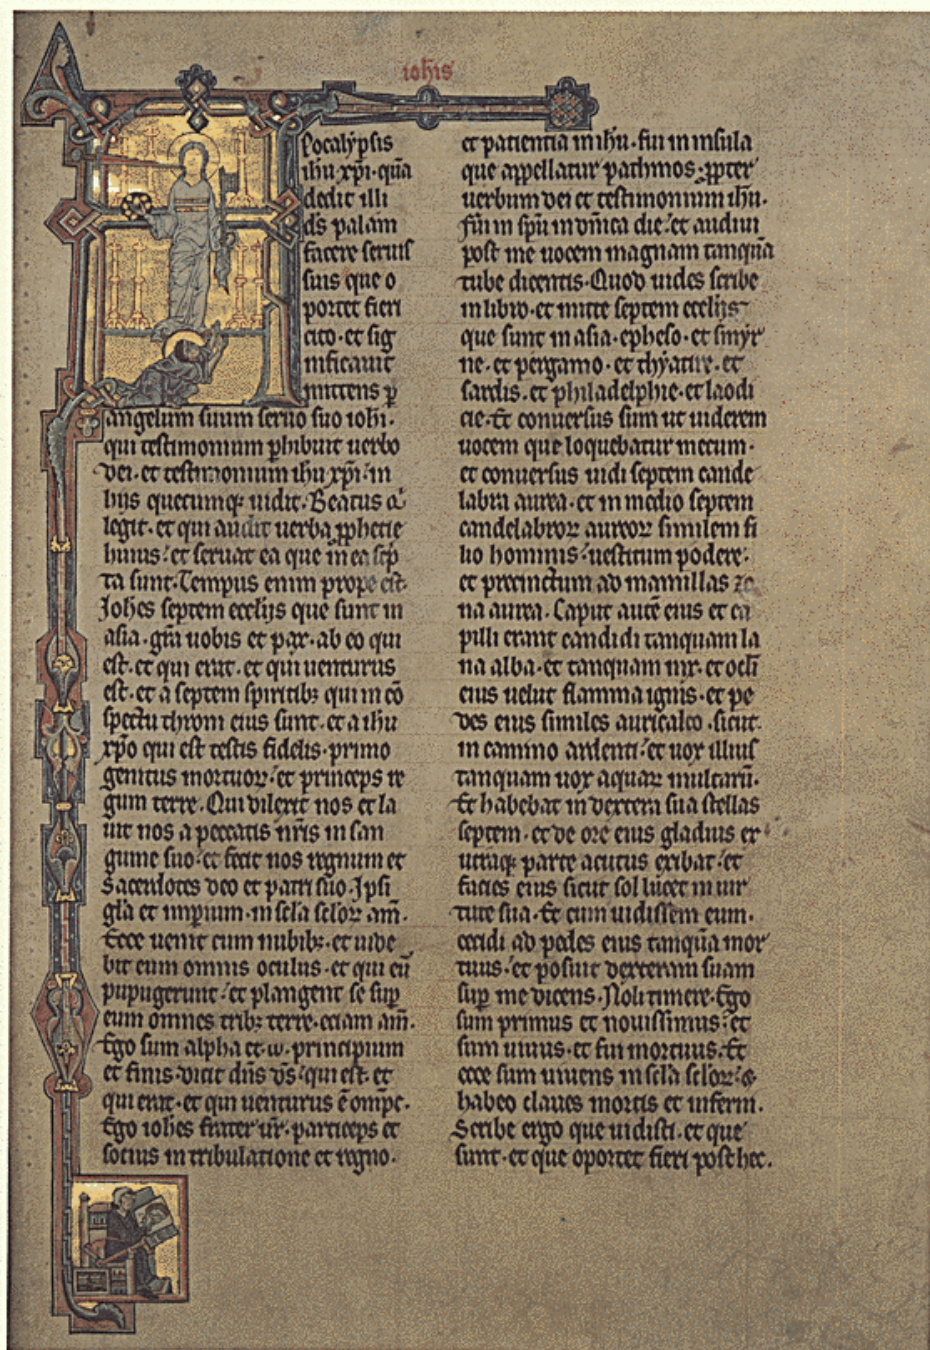 iohis
pocalypsis
ihu xpi. qua
dedit illi
ds palam
facere seruis
suis que o
portet fieri
cito. et sig
nificauit
mittens p
angelum suum seruo suo iohi.
qui testimonium phibuit uerbo
dei. et testimonium ihu xpi. in
hijs quecumq; uidit. Beatus q
legit. et qui audit uerba pphetie
huius. et seruat ea que in ea scp
ta sunt. Tempus enim prope est.
Iohes septem ecclijs que sunt in
asia. gra uobis et pax. ab eo qui
est. et qui erat. et qui uenturus
est. et a septem spiritib; qui in co
spectu throni eius sunt. et a ihu
xpo qui est testis fidelis. primo
genitus mortuor. et princeps re
gum terre. Qui dilexit nos et la
uit nos a peccatis nris in san
guine suo. et fecit nos regnum et
sacerdotes deo et patri suo. Ipsi
gla et imperium. in scla sclor. am.
Ecce uenit cum nubib;. et uide
bit eum omnis oculus. et qui eu
pupugerunt. et plangent se sup
eum omnes trib; terre. eciam am.
Ego sum alpha et ω. principium
et finis. dicit dns ds. qui est. et
qui erat. et qui uenturus e omps.
Ego iohes frater ur. particeps et
socius in tribulatione et regno.
et patientia in ihu. fui in insula
que appellatur pathmos. ppter
uerbum dei et testimonium ihu.
fui in spu in dnica die. et audiui
post me uocem magnam tanqua
tube dicentis. Quod uides scribe
in libro. et mitte septem ecclijs
que sunt in asia. epheso. et smyr
ne. et pergamo. et thyatire. et
sardis. et philadelphie. et laodi
cie. Et conuersus sum ut uiderem
uocem que loquebatur mecum.
et conuersus uidi septem cande
labra aurea. et in medio septem
candelabror aureor similem fi
lio hominis. uestitum podere.
et precinctum ad mamillas zo
na aurea. Caput aute eius et ca
pilli erant candidi tanquam la
na alba. et tanquam nix. et ocli
eius uelut flamma ignis. et pe
des eius similes auricalco. sicut
in camino ardenti. et uox illius
tanquam uox aquar multaru.
Et habebat in dextera sua stellas
septem. et de ore eius gladius ex
utraq; parte acutus exibat. et
facies eius sicut sol lucet in uir
tute sua. Et cum uidissem eum.
cecidi ad pedes eius tanqua mor
tuus. et posuit dexteram suam
sup me dicens. Noli timere. Ego
sum primus et nouissimus. et
sum uiuus. et fui mortuus. Et
ecce sum uiuens in scla sclor. et
habeo claues mortis et inferni.
Scribe ergo que uidisti. et que
sunt. et que oportet fieri post hec.